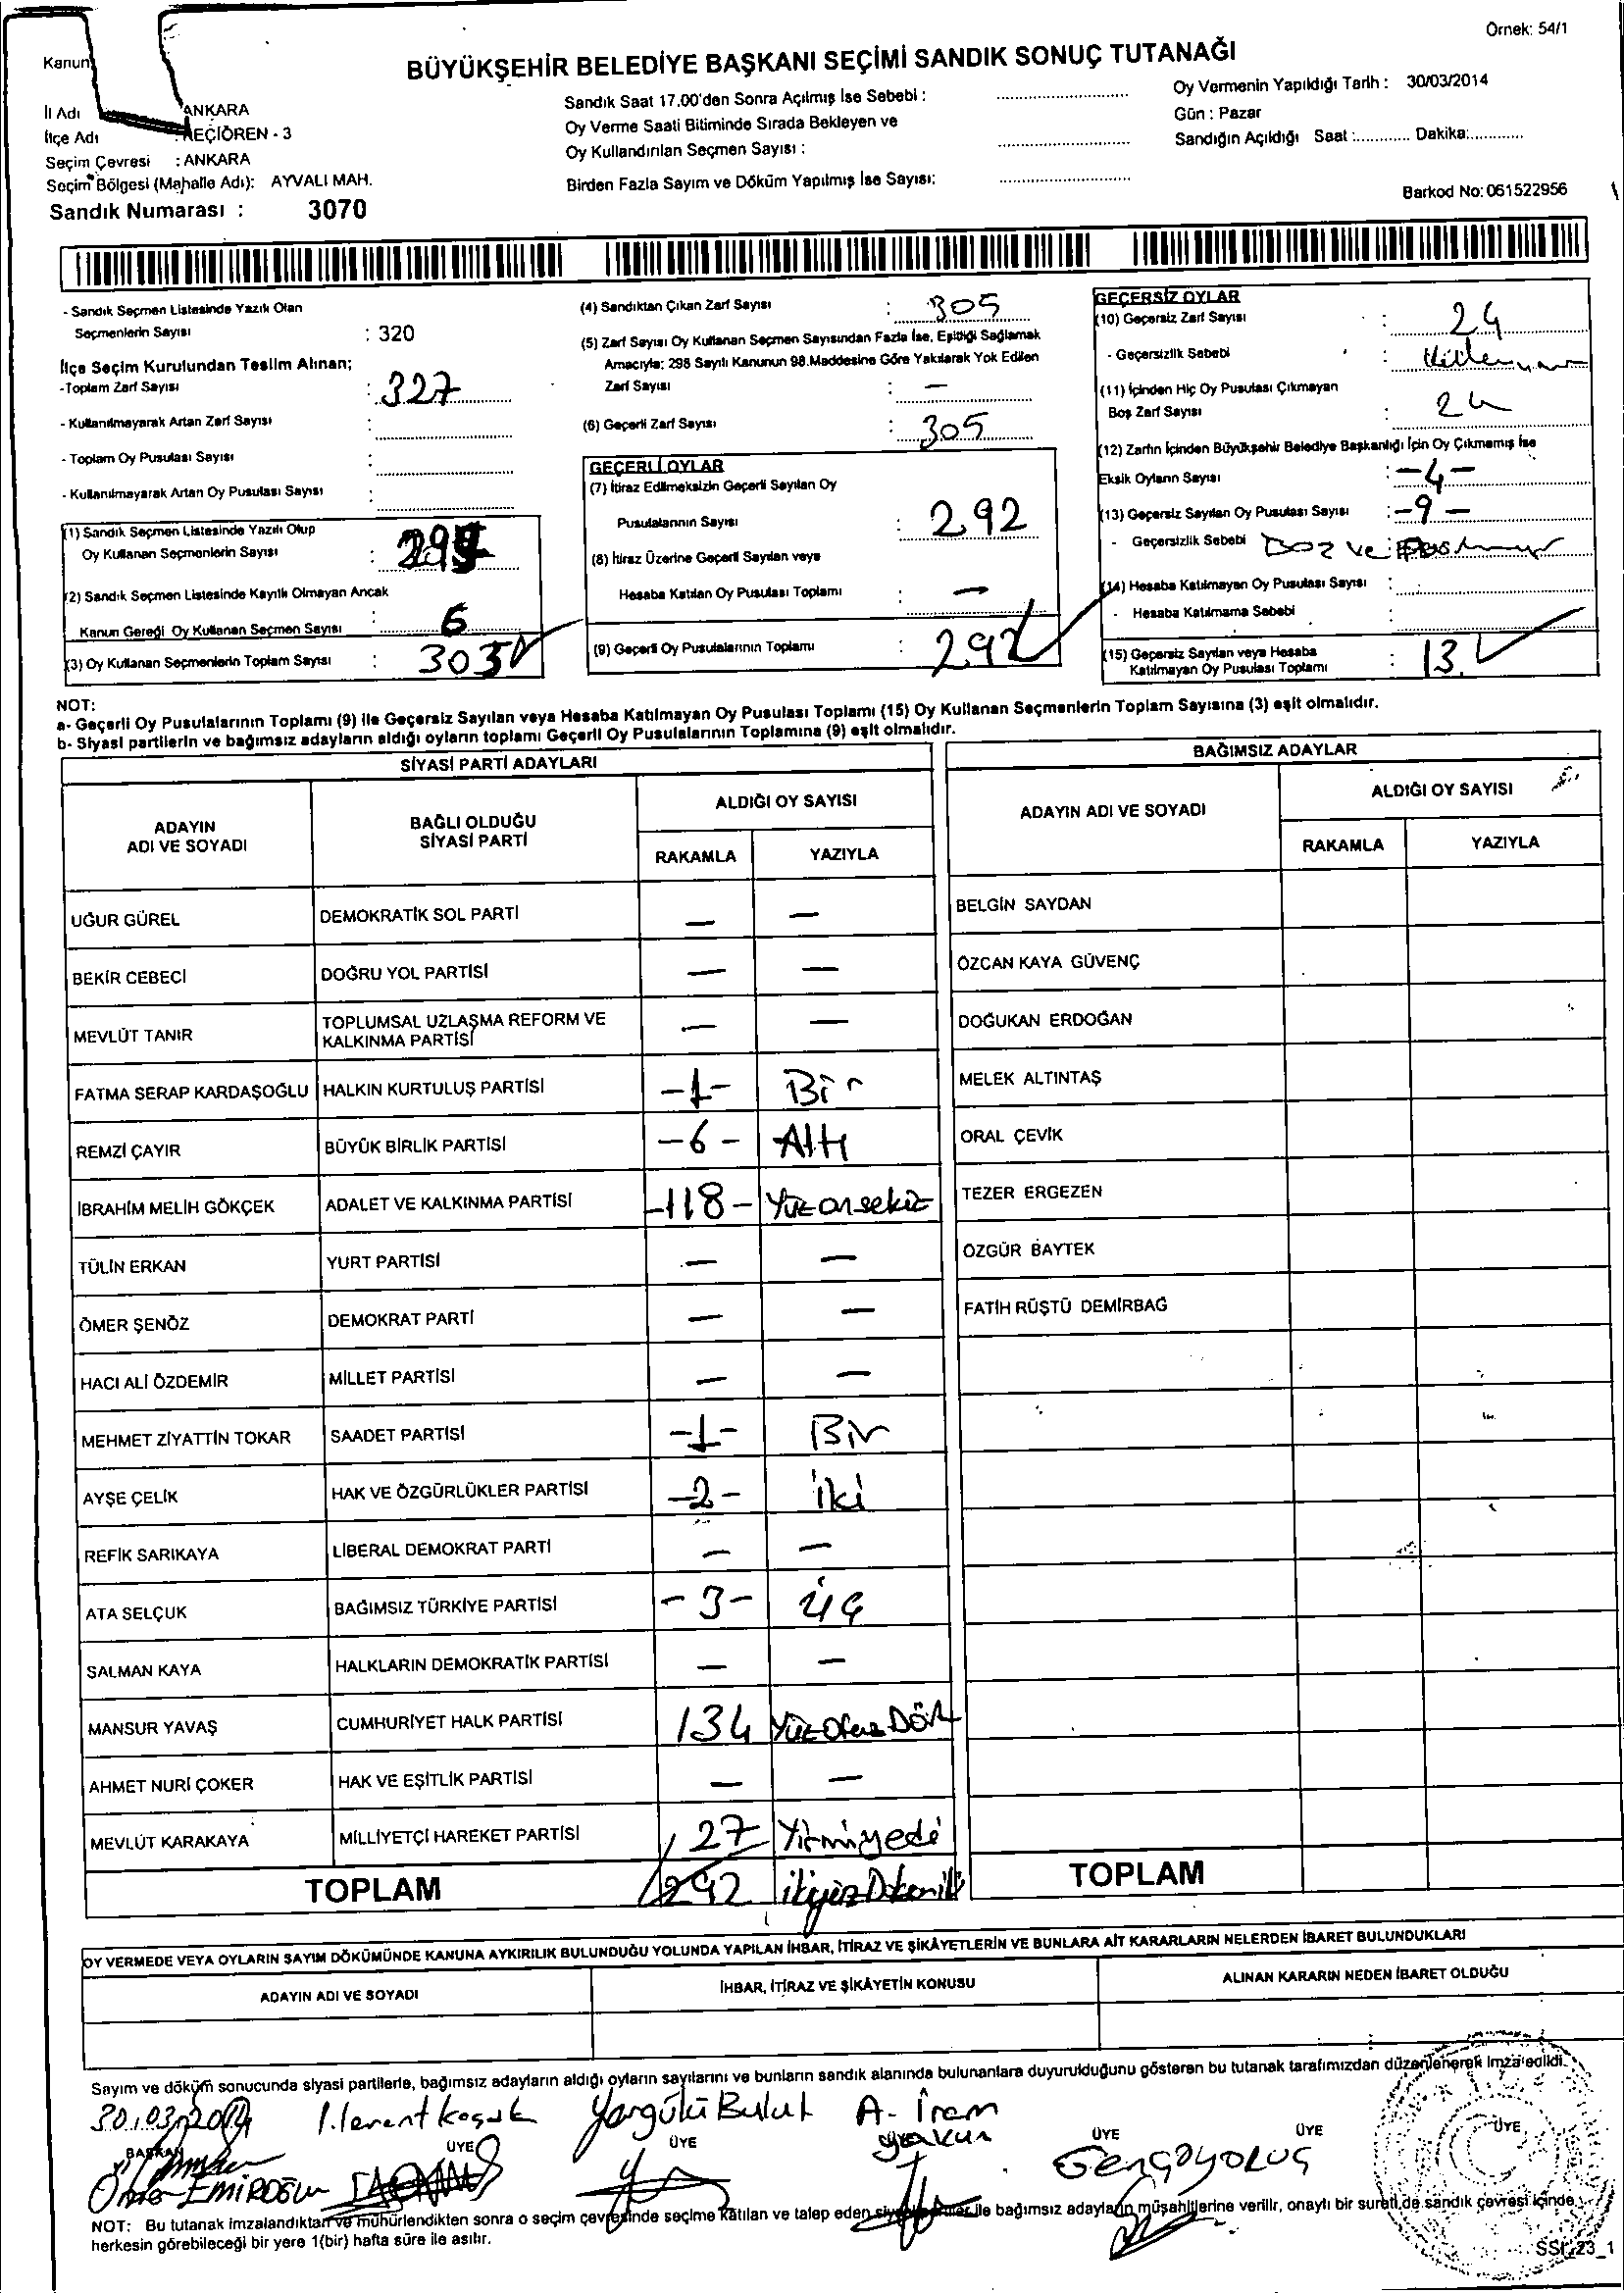 Örnek: 54/1
Kanun
BÜYÜKŞEHİR BELEDİYE BAŞKANI SEÇİMİ SANDIK SONUÇ TUTANAĞI
İl Adı ANKARA
İlçe Adı KEÇİÖREN - 3
Seçim Çevresi : ANKARA
Seçim Bölgesi (Mahalle Adı): AYVALI MAH.
Sandık Numarası : 3070
Sandık Saat 17.00'den Sonra Açılmış İse Sebebi :
Oy Verme Saati Bitiminde Sırada Bekleyen ve
Oy Kullandırılan Seçmen Sayısı :
Birden Fazla Sayım ve Döküm Yapılmış İse Sayısı:
Oy Vermenin Yapıldığı Tarih : 30/03/2014
Gün : Pazar
Sandığın Açıldığı Saat :............ Dakika:............
Barkod No: 061522956
- Sandık Seçmen Listesinde Yazılı Olan
Seçmenlerin Sayısı : 320
İlçe Seçim Kurulundan Teslim Alınan;
-Toplam Zarf Sayısı : 327
- Kullanılmayarak Artan Zarf Sayısı :
- Toplam Oy Pusulası Sayısı :
- Kullanılmayarak Artan Oy Pusulası Sayısı :
(1) Sandık Seçmen Listesinde Yazılı Olup
Oy Kullanan Seçmenlerin Sayısı :
(2) Sandık Seçmen Listesinde Kayıtlı Olmayan Ancak
Kanun Gereği Oy Kullanan Seçmen Sayısı : 6
(3) Oy Kullanan Seçmenlerin Toplam Sayısı : 305
(4) Sandıktan Çıkan Zarf Sayısı : 305
(5) Zarf Sayısı Oy Kullanan Seçmen Sayısından Fazla İse, Eşitliği Sağlamak
Amacıyla; 298 Sayılı Kanunun 98.Maddesine Göre Yakılarak Yok Edilen
Zarf Sayısı : —
(6) Geçerli Zarf Sayısı : 305
GEÇERLİ OYLAR
(7) İtiraz Edilmeksizin Geçerli Sayılan Oy
Pusulalarının Sayısı : 292
(8) İtiraz Üzerine Geçerli Sayılan veya
Hesaba Katılan Oy Pusulası Toplamı : —
(9) Geçerli Oy Pusulalarının Toplamı : 292
GEÇERSİZ OYLAR
(10) Geçersiz Zarf Sayısı : 24
- Geçersizlik Sebebi :
(11) İçinden Hiç Oy Pusulası Çıkmayan
Boş Zarf Sayısı : 24
(12) Zarfın İçinden Büyükşehir Belediye Başkanlığı İçin Oy Çıkmamış İse
Eksik Oyların Sayısı : -4-
(13) Geçersiz Sayılan Oy Pusulası Sayısı : -9-
- Geçersizlik Sebebi : ve
(14) Hesaba Katılmayan Oy Pusulası Sayısı :
- Hesaba Katılmama Sebebi :
(15) Geçersiz Sayılan veya Hesaba
Katılmayan Oy Pusulası Toplamı : 13
NOT:
a- Geçerli Oy Pusulalarının Toplamı (9) ile Geçersiz Sayılan veya Hesaba Katılmayan Oy Pusulası Toplamı (15) Oy Kullanan Seçmenlerin Toplam Sayısına (3) eşit olmalıdır.
b- Siyasi partilerin ve bağımsız adayların aldığı oyların toplamı Geçerli Oy Pusulalarının Toplamına (9) eşit olmalıdır.
SİYASİ PARTİ ADAYLARI
BAĞIMSIZ ADAYLAR
ADAYIN ADI VE SOYADI
BAĞLI OLDUĞU SİYASİ PARTİ
ALDIĞI OY SAYISI
RAKAMLA YAZIYLA
ADAYIN ADI VE SOYADI
ALDIĞI OY SAYISI
RAKAMLA YAZIYLA
UĞUR GÜREL DEMOKRATİK SOL PARTİ — — BELGİN SAYDAN
BEKİR CEBECİ DOĞRU YOL PARTİSİ — — ÖZCAN KAYA GÜVENÇ
MEVLÜT TANIR TOPLUMSAL UZLAŞMA REFORM VE KALKINMA PARTİSİ — — DOĞUKAN ERDOĞAN
FATMA SERAP KARDAŞOĞLU HALKIN KURTULUŞ PARTİSİ -1- Bir MELEK ALTINTAŞ
REMZİ ÇAYIR BÜYÜK BİRLİK PARTİSİ -6- Altı ORAL ÇEVİK
İBRAHİM MELİH GÖKÇEK ADALET VE KALKINMA PARTİSİ -118- Yüzonsekiz TEZER ERGEZEN
TÜLİN ERKAN YURT PARTİSİ — — ÖZGÜR BAYTEK
ÖMER ŞENÖZ DEMOKRAT PARTİ — — FATİH RÜŞTÜ DEMİRBAĞ
HACI ALİ ÖZDEMİR MİLLET PARTİSİ — —
MEHMET ZİYATTİN TOKAR SAADET PARTİSİ -1- Bir
AYŞE ÇELİK HAK VE ÖZGÜRLÜKLER PARTİSİ -2- İki
REFİK SARIKAYA LİBERAL DEMOKRAT PARTİ — —
ATA SELÇUK BAĞIMSIZ TÜRKİYE PARTİSİ -3- Üç
SALMAN KAYA HALKLARIN DEMOKRATİK PARTİSİ — —
MANSUR YAVAŞ CUMHURİYET HALK PARTİSİ 134 YüzOtuzDört
AHMET NURİ ÇOKER HAK VE EŞİTLİK PARTİSİ — —
MEVLÜT KARAKAYA MİLLİYETÇİ HAREKET PARTİSİ 27 Yirmiyedi
TOPLAM 292 ikiyüzDoksaniki TOPLAM
OY VERMEDE VEYA OYLARIN SAYIM DÖKÜMÜNDE KANUNA AYKIRILIK BULUNDUĞU YOLUNDA YAPILAN İHBAR, İTİRAZ VE ŞİKÂYETLERİN VE BUNLARA AİT KARARLARIN NELERDEN İBARET BULUNDUKLARI
ADAYIN ADI VE SOYADI İHBAR, İTİRAZ VE ŞİKÂYETİN KONUSU ALINAN KARARIN NEDEN İBARET OLDUĞU
Sayım ve döküm sonucunda siyasi partilerle, bağımsız adayların aldığı oyların sayılarını ve bunların sandık alanında bulunanlara duyurulduğunu gösteren bu tutanak tarafımızdan düzenlenerek imza edildi.
30.03.2014 Yargülü Bulut A. İrem
BAŞKAN ÜYE ÜYE ÜYE ÜYE ÜYE
NOT: Bu tutanak imzalandıktan ve mühürlendikten sonra o seçim çevresinde seçime katılan ve talep eden ile bağımsız adayların müşahitlerine verilir, onaylı bir sureti de sandık çevresi içinde
herkesin görebileceği bir yere 1(bir) hafta süre ile asılır.